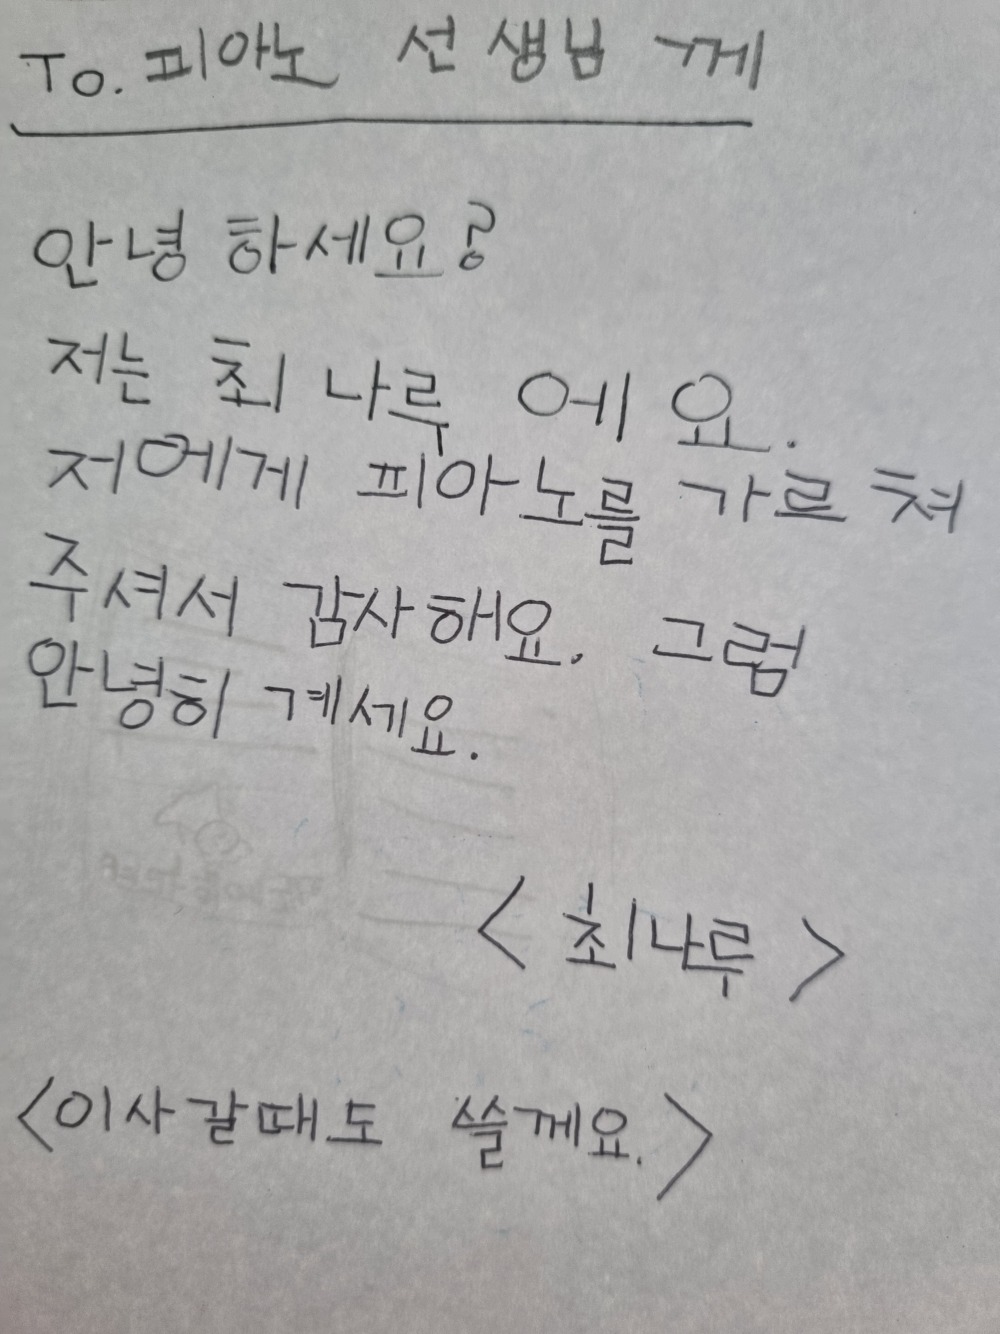 To. 피아노 선생님 께
안녕 하세요?
저는 최 나루 에 요.
저에게 피아노를 가르 쳐
주셔서 감사해요. 그럼
안녕히 계세요.
<최나루>
<이사갈때도 쓸께요.>